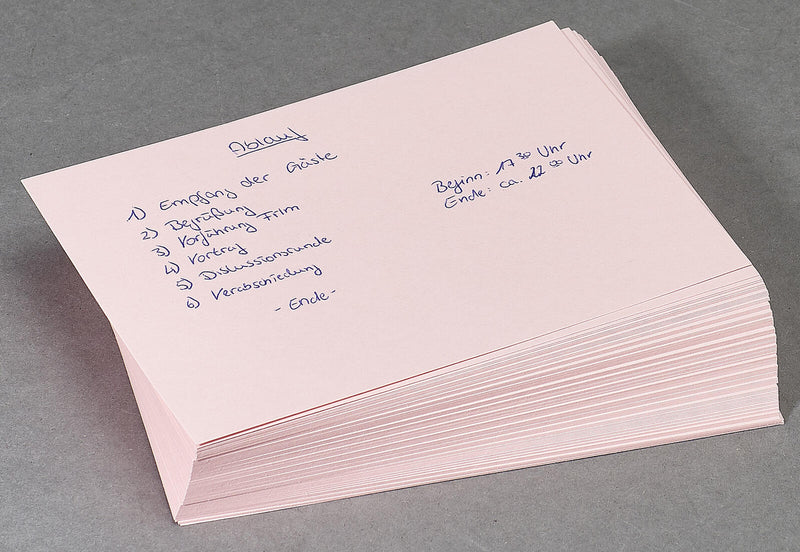 Ablauf
1) Empfang der Gäste
2) Begrüßung
3) Vorführung Film
4) Vortrag
5) Diskussionsrunde
6) Verabschiedung
- Ende -
Beginn: 17 30 Uhr
Ende: ca. 22 00 Uhr